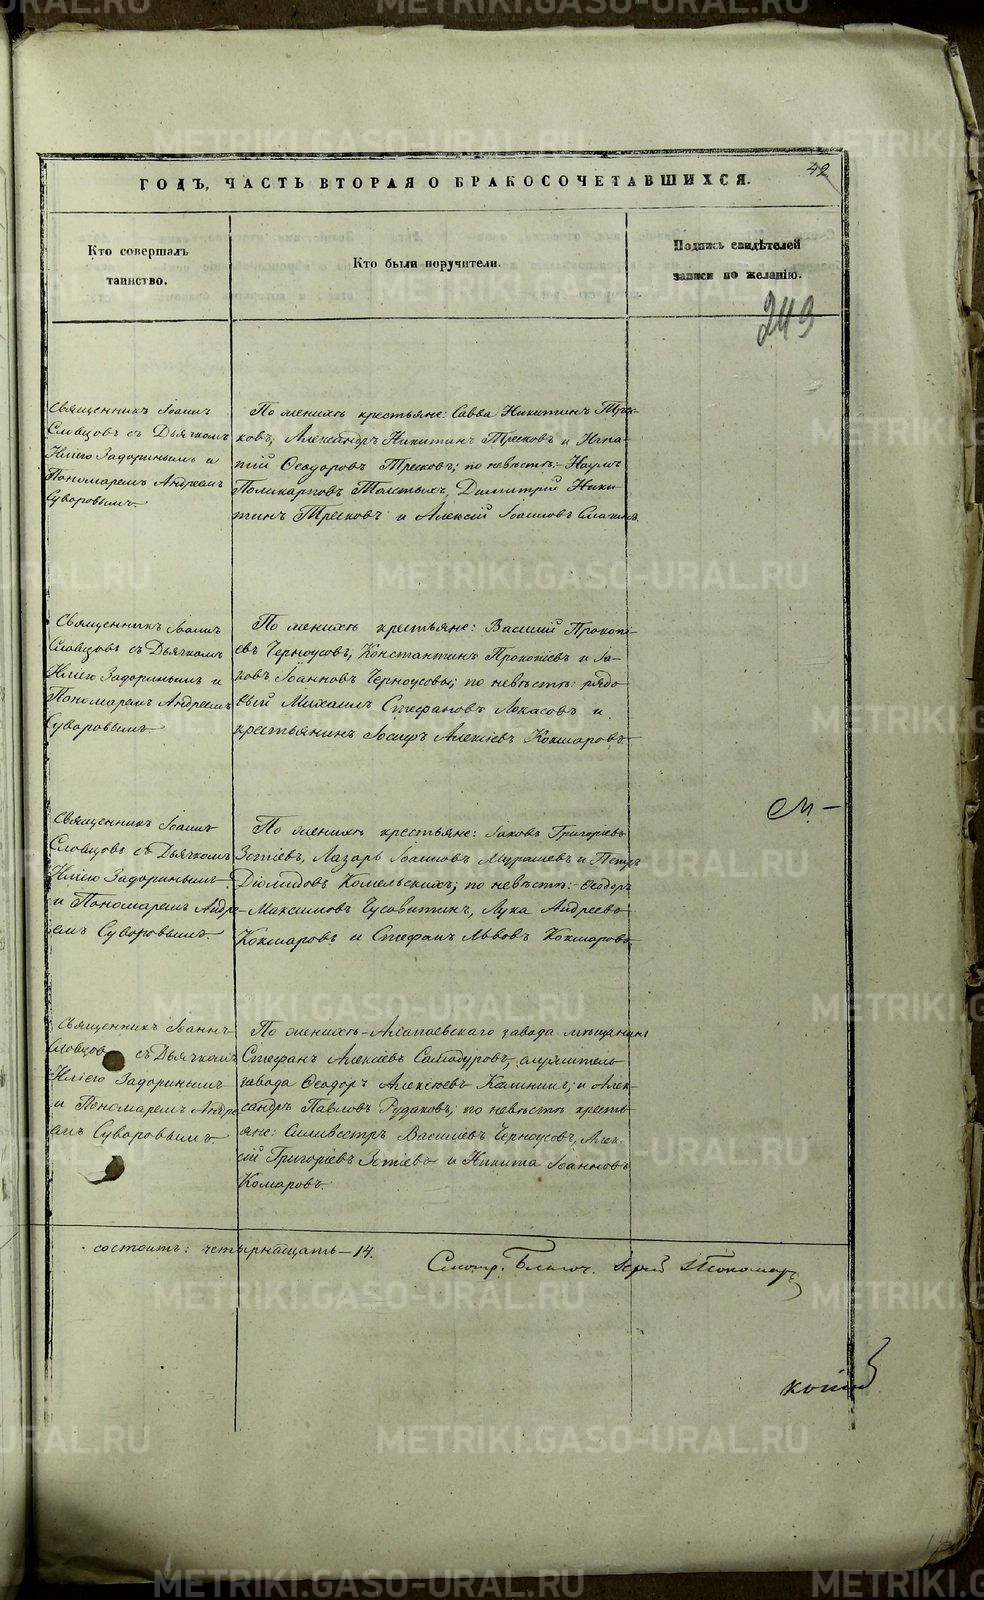 METRIKI.GASO-URAL.RU
42
ГОДЪ, ЧАСТЬ ВТОРАЯ О БРАКОСОЧЕТАВШИХСЯ.
Кто совершалъ
таинство.
Кто были поручители.
Подпись свидѣтелей
записи по желанію.
243
Священникъ Іоаннъ
Словцовъ съ Дьячкомъ
Иліею Задоринымъ и
Пономаремъ Андреемъ
Суворовымъ.
По женихѣ крестьяне: Савва Никитинъ Трес-
ковъ, Александръ Никитинъ Тресковъ и Игна-
тій Ѳеодоровъ Тресковъ; по невѣстѣ: Наумъ
Поликарповъ Толстыхъ, Димитрій Ники-
тинъ Тресковъ и Алексій Іоанновъ
Священникъ Іоаннъ
Словцовъ съ Дьячкомъ
Иліею Задоринымъ и
Пономаремъ Андреемъ
Суворовымъ.
По женихѣ крестьяне: Василій Прокопі-
евъ Черноусовъ, Константинъ Прокопіевъ и Іа-
ковъ Іоанновъ Черноусовы; по невѣстѣ: рядо
вый Михаилъ Стефановъ и
крестьянинъ Іосифъ Алексіевъ Кокшаровъ.
Священникъ Іоаннъ
Словцовъ съ Дьячкомъ
Иліею Задоринымъ
и Пономаремъ Андре-
емъ Суворовымъ.
По женихѣ крестьяне: Іаковъ Григоріевъ
Зотіевъ, Лазарь Іоанновъ Мурашевъ и Петръ
Діомидовъ Комельскихъ; по невѣстѣ: Ѳеодоръ
Максимовъ Чусовитинъ, Лука Андреевъ
Кокшаровъ и Стефанъ Львовъ Кокшаровъ.
М
Священникъ Іоаннъ
Словцовъ съ Дьячкомъ
Иліею Задоринымъ
и Пономаремъ Андре
емъ Суворовымъ
По женихѣ Алапаевскаго завода мѣщанинъ
Стефанъ Алексіевъ Самодуровъ, служитель
завода Ѳеодоръ Алексіевъ Калининъ, и Алек-
сандръ Павловъ Рудаковъ; по невѣстѣ кресть-
яне: Силивестръ Василіевъ Черноусовъ, Алек-
сій Григоріевъ Зотіевъ и Никита Іоанновъ
Комаровъ.
состоитъ: четырнадцать 14.
Смотр. Благоч. Іерей